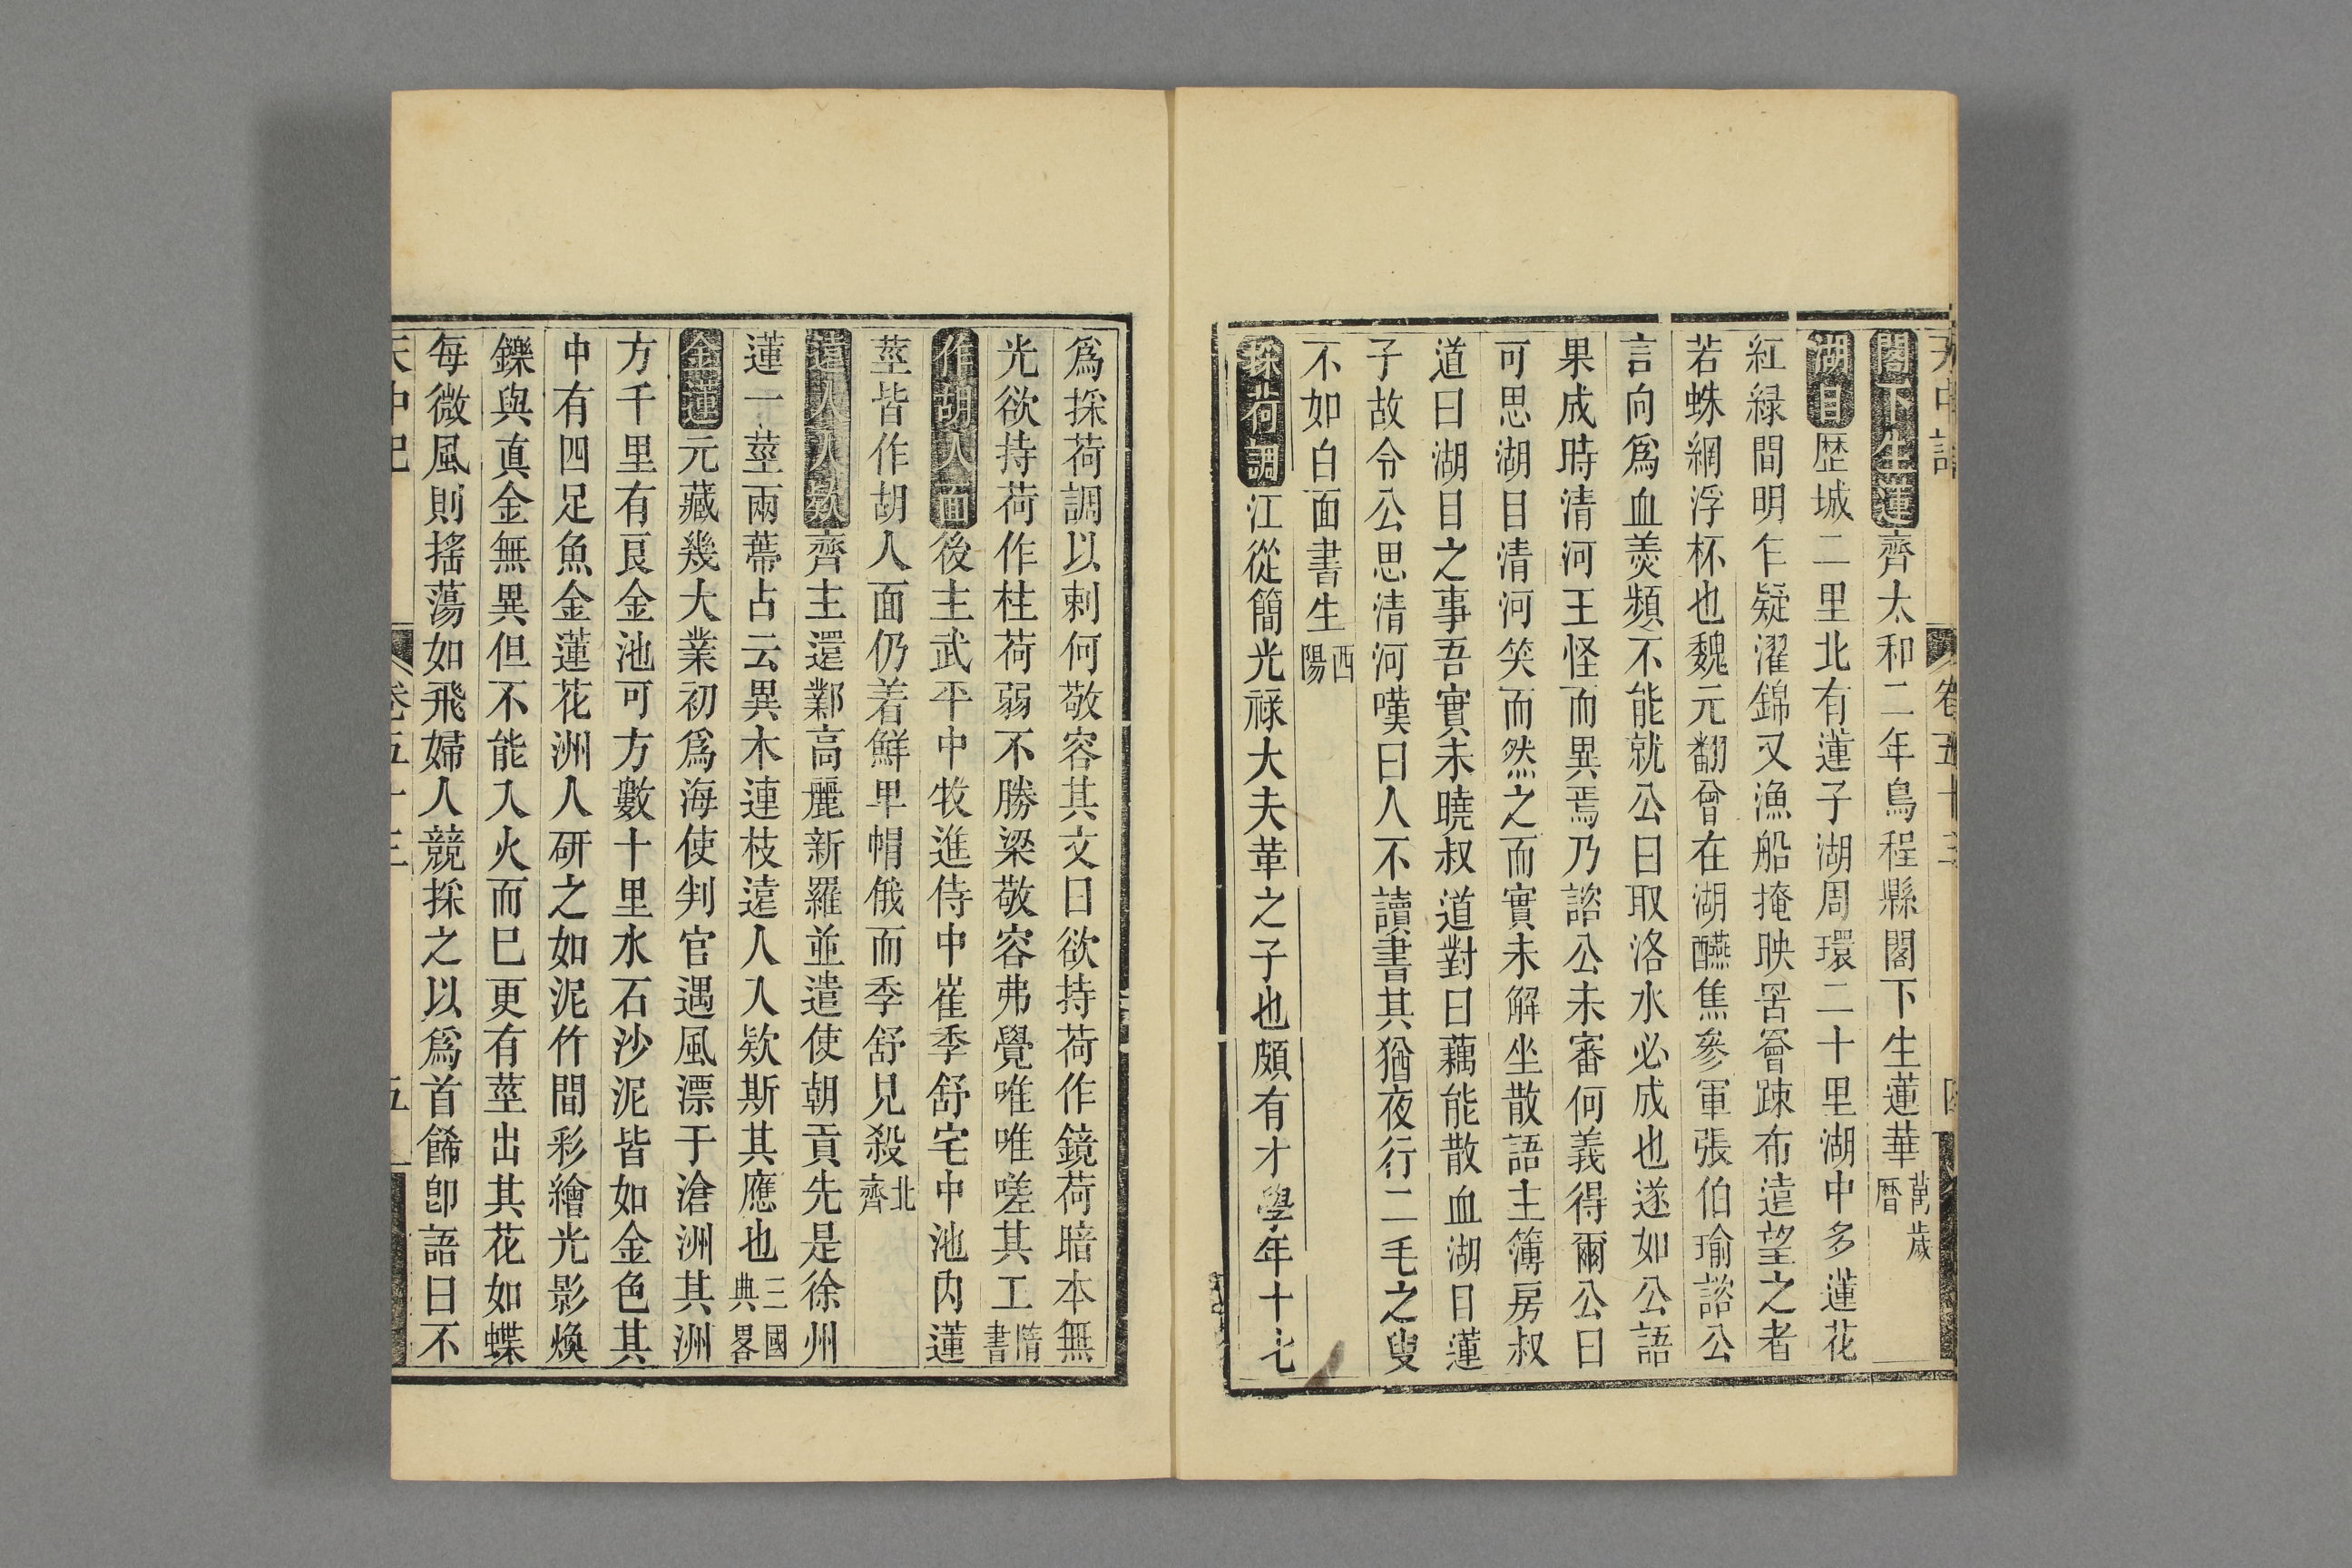 天中記 卷五十三
閣下生蓮齊太和二年烏程縣閣下生蓮華萬歲曆
湖目歷城二里北有蓮子湖周環二十里湖中多蓮花
紅緑間明乍疑濯錦又漁船掩映罟罾踈布遠望之者
若蛛網浮杯也魏元翻曾在湖醼焦參軍張伯瑜諮公
言向爲血羮頻不能就公曰取洛水必成也遂如公語
果成時清河王怪而異焉乃諮公未審何義得爾公曰
可思湖目清河笑而然之而實未解坐散語主簿房叔
道曰湖目之事吾實未曉叔道對曰藕能散血湖目蓮
子故令公思清河嘆曰人不讀書其猶夜行二毛之叟
不如白面書生西陽
採荷調江從簡光禄大夫革之子也頗有才學年十七
爲採荷調以刺何敬容其文曰欲持荷作鏡荷暗本無
光欲持荷作柱荷弱不勝梁敬容弗覺唯唯嗟其工隋書
作胡人面後主武平中牧進侍中崔季舒宅中池内蓮
莖皆作胡人面仍着鮮卑帽俄而季舒見殺北齊
遠人入欵齊主還鄴高麗新羅並遣使朝貢先是徐州
蓮一莖兩蔕占云異木連枝遠人入欵斯其應也三國典畧
金蓮元藏幾大業初爲海使判官遇風漂于滄洲其洲
方千里有良金池可方數十里水石沙泥皆如金色其
中有四足魚金蓮花洲人研之如泥竹間彩繪光影煥
鑠與真金無異但不能入火而巳更有莖出其花如蝶
每微風則搖蕩如飛婦人競採之以爲首餙卽語曰不
天中記 卷五十三 五